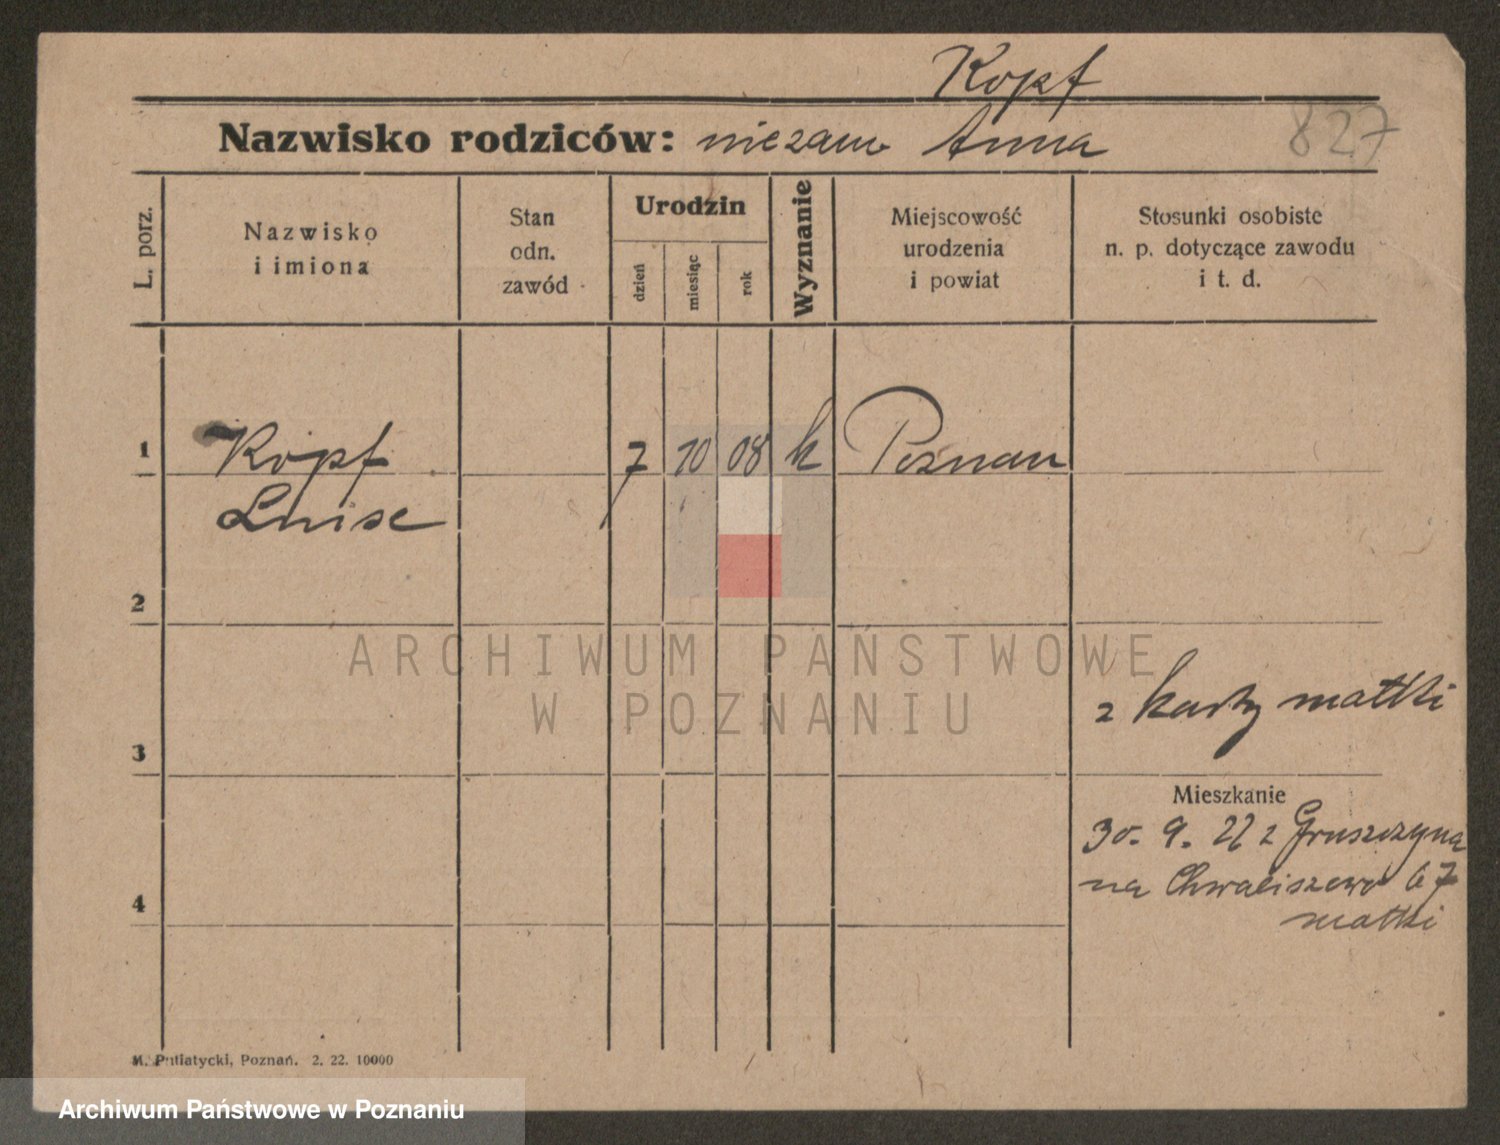 Kopf
Nazwisko rodziców: niezam Anna
827
L. porz.
Nazwisko
i imiona
Stan
odn.
zawód
Urodzin
dzień
miesiąc
rok
Wyznanie
Miejscowość
urodzenia
i powiat
Stosunki osobiste
n. p. dotyczące zawodu
i t. d.
1
Kopf
Luise
7 10 08 k Poznan
2
3
z karty matki
4
Mieszkanie
30. 9. 22 z Gruszczyna
na Chwaliszewo 67
matki
M. Putiatycki, Poznań. 2. 22. 10000
ARCHIWUM PAŃSTWOWE
W POZNANIU
Archiwum Państwowe w Poznaniu